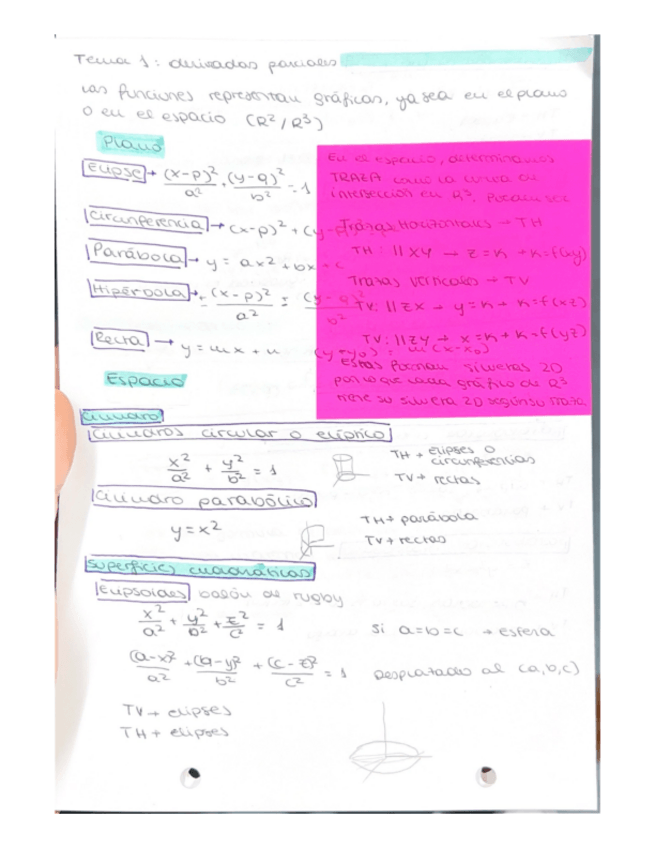 Tema 1: derivadas parciales
Las funciones representan gráficas, ya sea en el plano
o en el espacio (R²/R³)
Plano
Elipse → (x-p)²/a² + (y-q)²/b² = 1
Circunferencia → (x-p)² + (y-
Parábola → y = ax² + bx + c
Hipérbola → ± (x-p)²/a² ± (y-q)²/b²
Recta → y = mx + n (y+y₀) = m(x-x₀)
En el espacio, determinamos
TRAZA como la curva de
intersección en R³. Pueden ser
Trazas Horizontales → TH
TH: || XY → z = K → K = f(xy)
Trazas verticales → TV
TV: || ZX → y = K → K = f(xz)
TV: || ZY → x = K → K = f(yz)
Estas Poseen siluetas 2D
por lo que cada gráfico de R³
tiene su silueta 2D según su traza.
Espacio
Cilindro
Cilindros circular o elíptico
x²/a² + y²/b² = 1
TH → elipses o
circunferencias
TV → rectas
Cilindro parabólico
y = x²
TH → parábola
TV → rectas
Superficies cuadráticas
Elipsoides balón de rugby
x²/a² + y²/b² + z²/c² = 1 si a=b=c → esfera
(a-x)²/a² + (b-y)²/b² + (c-z)²/c² = 1 Desplazado al (a,b,c)
TV → elipses
TH → elipses